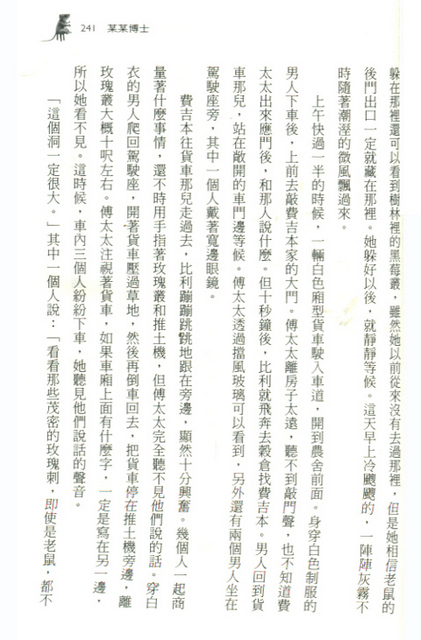 241 某某博士
躲在那裡還可以看到樹林裡的黑莓叢，雖然她以前從來沒有去過那裡，但是她相信老鼠的
後門出口一定就藏在那裡。她躲好以後，就靜靜等候。這天早上冷颼颼的，一陣陣灰霧不
時隨著潮溼的微風飄過來。
上午快過一半的時候，一輛白色廂型貨車駛入車道，開到農舍前面。身穿白色制服的
男人下車後，上前去敲費吉本家的大門。傅太太離房子太遠，聽不到敲門聲，也不知道費
太太出來應門後，和那人說什麼。但十秒鐘後，比利就飛奔去穀倉找費吉本。男人回到貨
車那兒，站在敞開的車門邊等候。傅太太透過擋風玻璃可以看到，另外還有兩個男人坐在
駕駛座旁，其中一個人戴著寬邊眼鏡。
費吉本往貨車那兒走過去，比利蹦蹦跳跳地跟在旁邊，顯然十分興奮。幾個人一起商
量著什麼事情，還不時用手指著玫瑰叢和推土機，但傅太太完全聽不見他們說的話。穿白
衣的男人爬回駕駛座，開著貨車壓過草地，然後再倒車回去，把貨車停在推土機旁邊，離
玫瑰叢大概十呎左右。傅太太注視著貨車，如果車廂上面有什麼字，一定是寫在另一邊，
所以她看不見。這時候，車內三個人紛紛下車，她聽見他們說話的聲音。
「這個洞一定很大。」其中一個人說：「看看那些茂密的玫瑰刺，即使是老鼠，都不